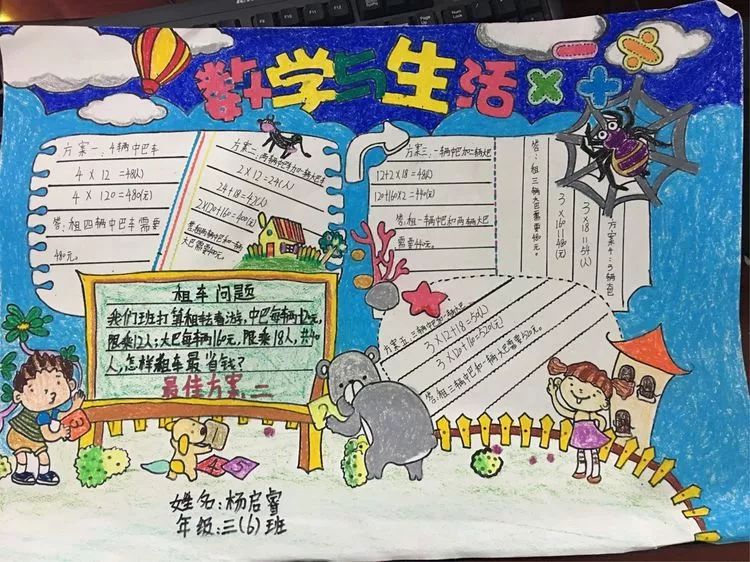 数学与生活
方案一：4辆中巴车
4 × 12 = 48(人)
4 × 120 = 480(元)
答：租四辆中巴车需要
480元。
方案二：两辆中巴和一辆大巴车
2×12=24(人)
24+18=42(人)
2×120+160=400(元)
答：租两辆中巴和一辆
大巴需要400元。
方案三：一辆中巴和二辆大巴
12+2×18=48(人)
120+160×2=440(元)
答：租一辆中巴和两辆大巴
需要440元。
方案4：3辆大巴
3×18=54(人)
3×160=480(元)
答：租三辆大巴需要480元。
方案五：三辆中巴和一辆大巴
3×12+18=54(人)
3×120+160=520(元)
答：租三辆中巴和一辆大巴需要520元。
租车问题
我们班打算租车去春游，中巴每辆120元，
限乘12人；大巴每辆160元，限乘18人，共40
人，怎样租车最省钱？
最佳方案：二
3
4 5
姓名：杨启睿
年级：三(6)班